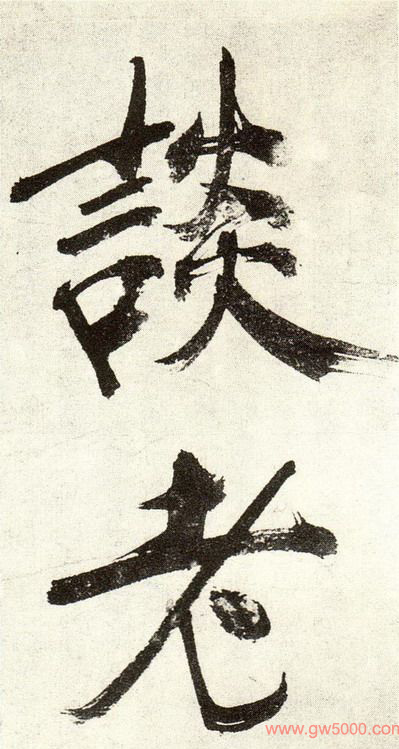 談
老
www.gw5000.com